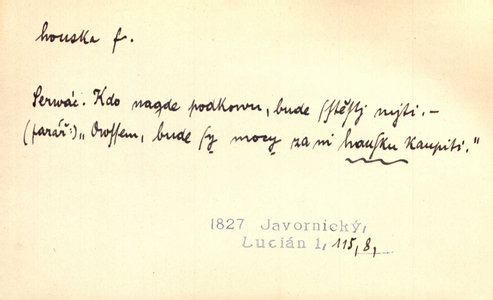 houska f.
Serwác. Kdo nagde podkowu, bude sstěstj mjti. –
(farář:) „Owssem, bude sy mocy za ni hausku kaupiti."
1827 Javornický,
Lucián 1, 115,8,